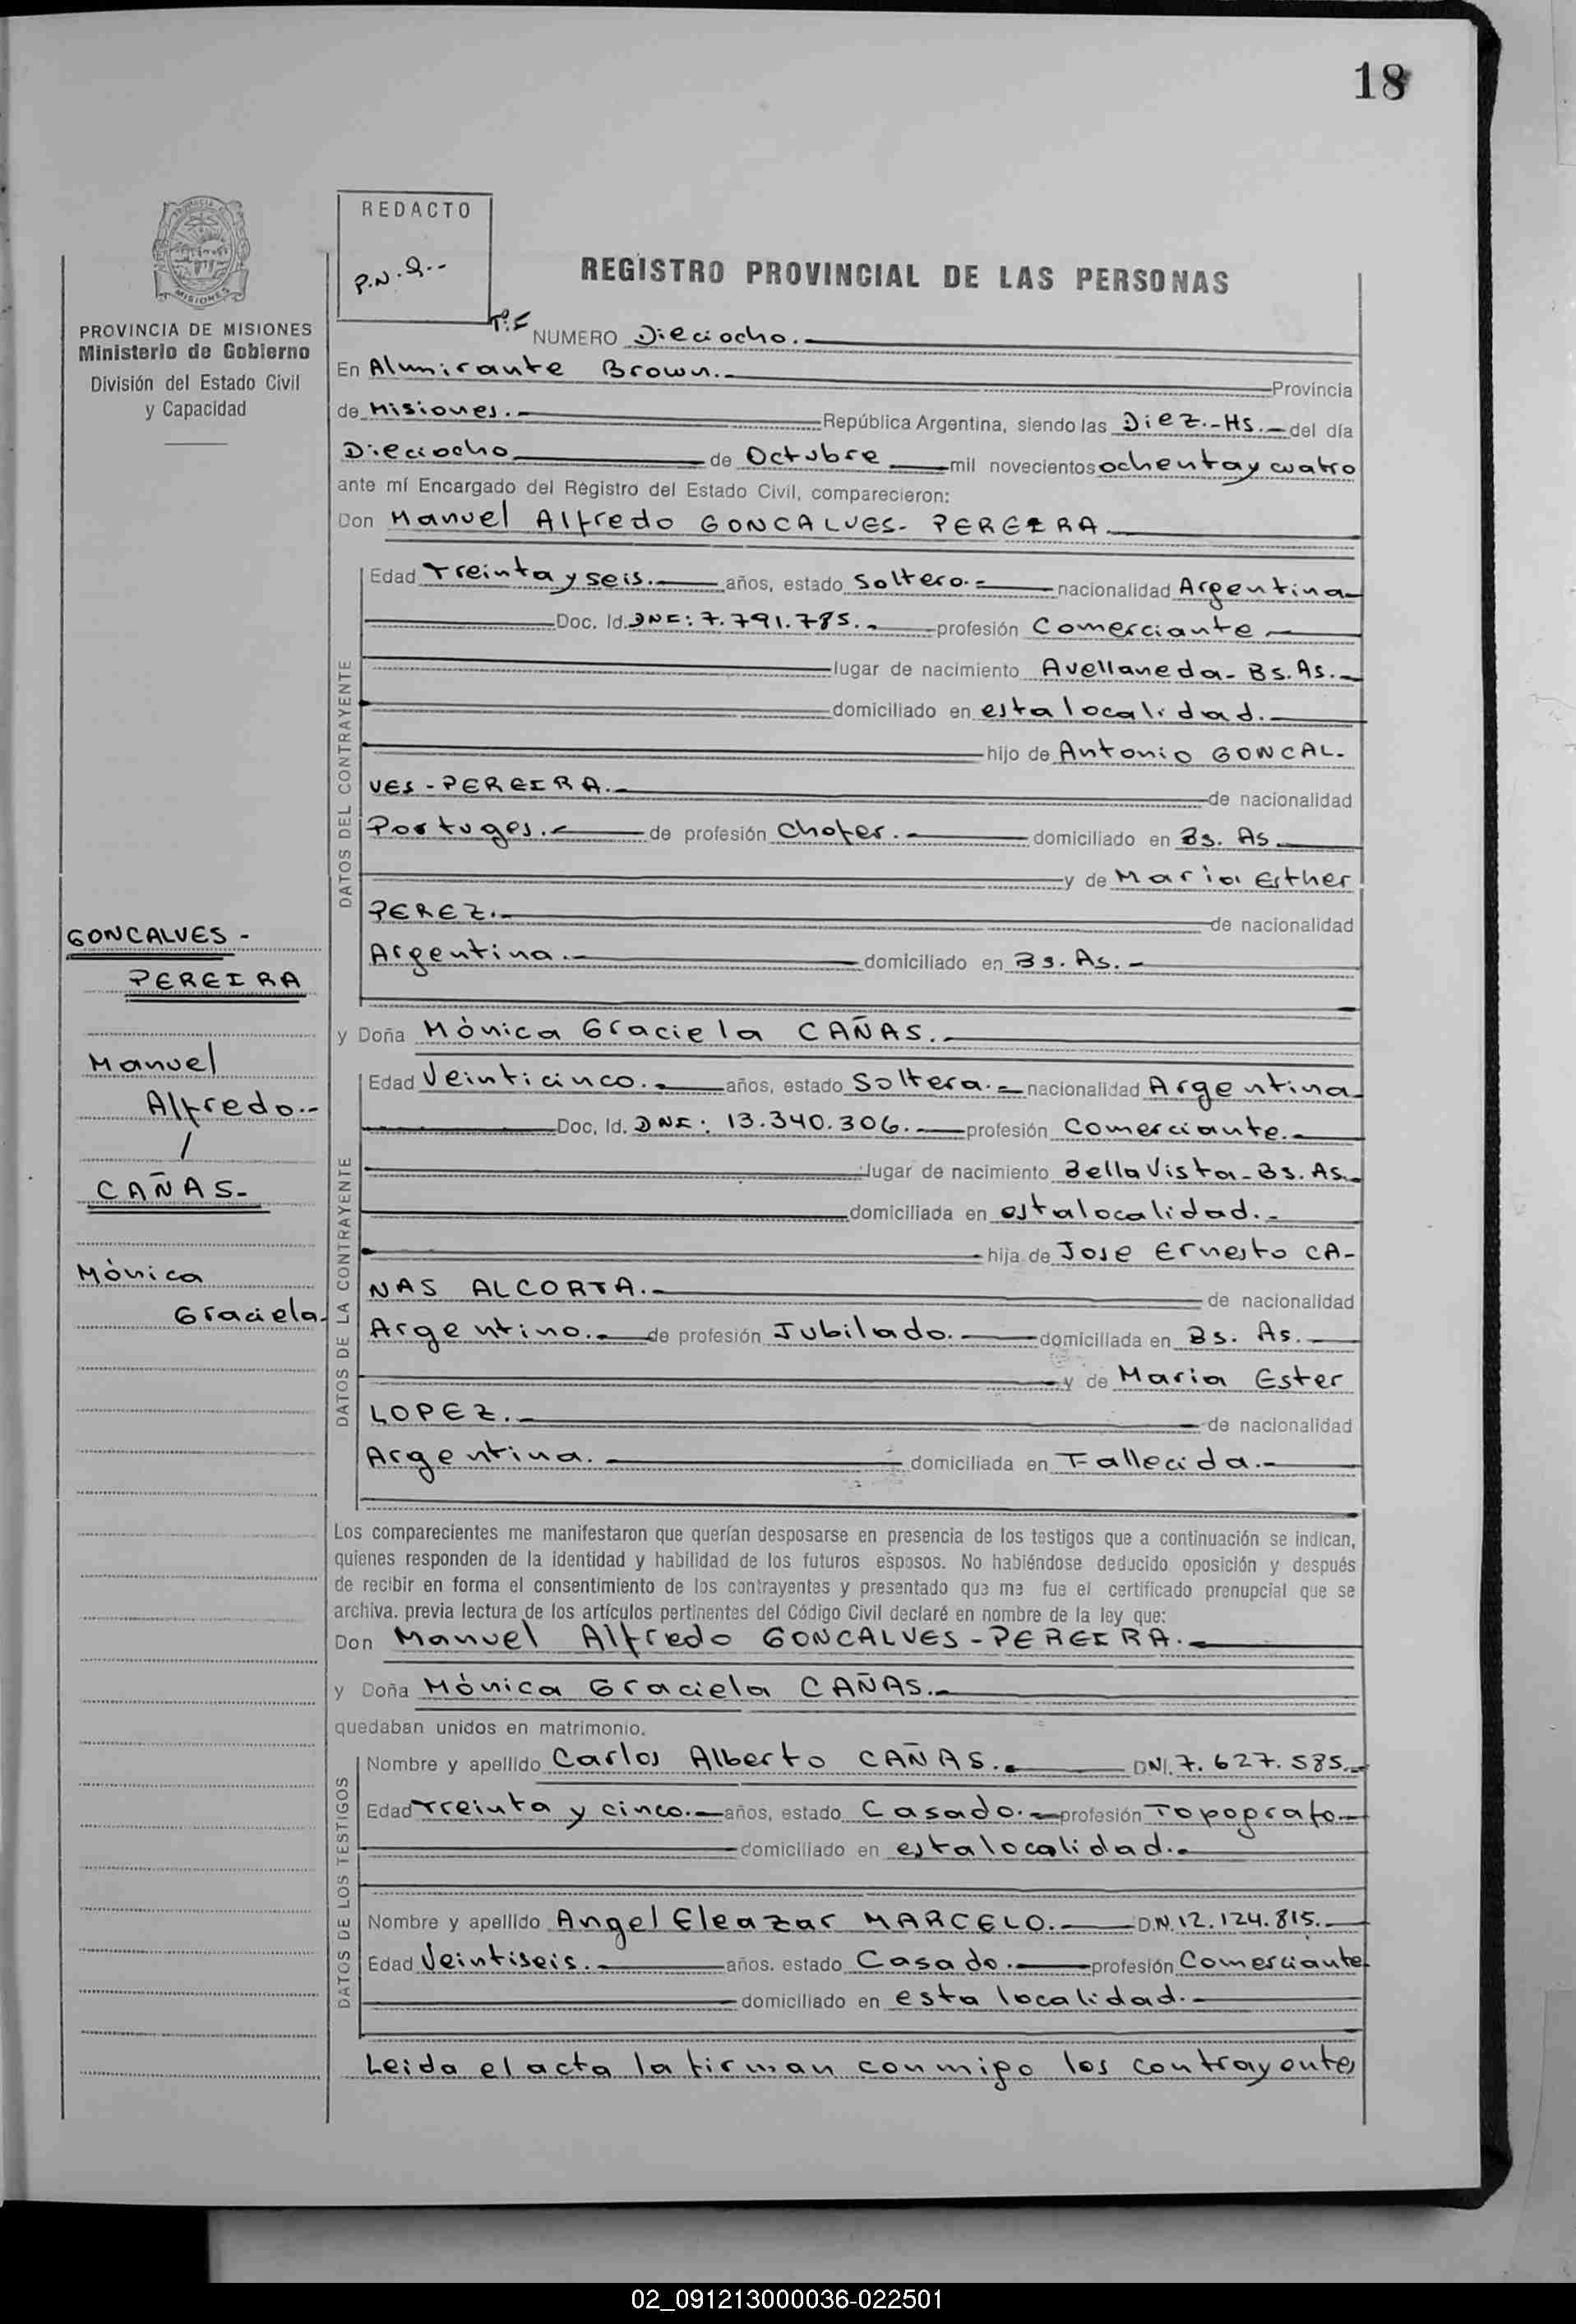 18
REDACTO
P.N.Q.--
REGISTRO PROVINCIAL DE LAS PERSONAS
PROVINCIA DE MISIONES
Ministerio de Gobierno
División del Estado Civil
y Capacidad
NUMERO Dieciocho.
En Almirante Brown. Provincia
de Misiones. República Argentina, siendo las Diez.-Hs. del día
Dieciocho de Octubre mil novecientos ochenta y cuatro
ante mí Encargado del Registro del Estado Civil, comparecieron:
Don Manuel Alfredo GONCALVES- PEREIRA
DATOS DEL CONTRAYENTE
Edad Treinta y seis. años, estado Soltero.- nacionalidad Argentina
Doc. Id. DNI: 7.791.785. profesión Comerciante
lugar de nacimiento Avellaneda- Bs. As.
domiciliado en esta localidad.
hijo de Antonio GONCAL-
VES-PEREIRA. de nacionalidad
Portuges. de profesión Chofer. domiciliado en Bs. As.
y de Maria Esther
PEREZ. de nacionalidad
Argentina. domiciliado en Bs. As.-
GONCALVES -
PEREIRA
Manuel
Alfredo.-
/
CAÑAS-
Mònica
Graciela.
y Doña Mònica Graciela CAÑAS.
DATOS DE LA CONTRAYENTE
Edad Veinticinco. años, estado Soltera.- nacionalidad Argentina
Doc. Id. DNI: 13.340.306. profesión Comerciante.
lugar de nacimiento Bella Vista-Bs. As.
domiciliada en esta localidad.-
hija de Jose Ernesto CA-
NAS ALCORTA. de nacionalidad
Argentino. de profesión Jubilado. domiciliada en Bs. As.
y de Maria Ester
LOPEZ. de nacionalidad
Argentina. domiciliada en Fallecida.-
Los comparecientes me manifestaron que querían desposarse en presencia de los testigos que a continuación se indican,
quienes responden de la identidad y habilidad de los futuros esposos. No habiéndose deducido oposición y después
de recibir en forma el consentimiento de los contrayentes y presentado que me fue el certificado prenupcial que se
archiva. previa lectura de los artículos pertinentes del Código Civil declaré en nombre de la ley que:
Don Manuel Alfredo GONCALVES-PEREIRA.
y Doña Mònica Graciela CAÑAS.
quedaban unidos en matrimonio.
DATOS DE LOS TESTIGOS
Nombre y apellido Carlos Alberto CAÑAS. DNI. 7.627.585.
Edad Treinta y cinco. años, estado Casado. profesión Topografo
domiciliado en esta localidad.
Nombre y apellido Angel Eleazar MARCELO. D.N. 12.124.815.
Edad Veintiseis. años. estado Casado. profesión Comerciante
domiciliado en esta localidad.
Leida el acta la firman conmigo los contrayentes
02_091213000036-022501